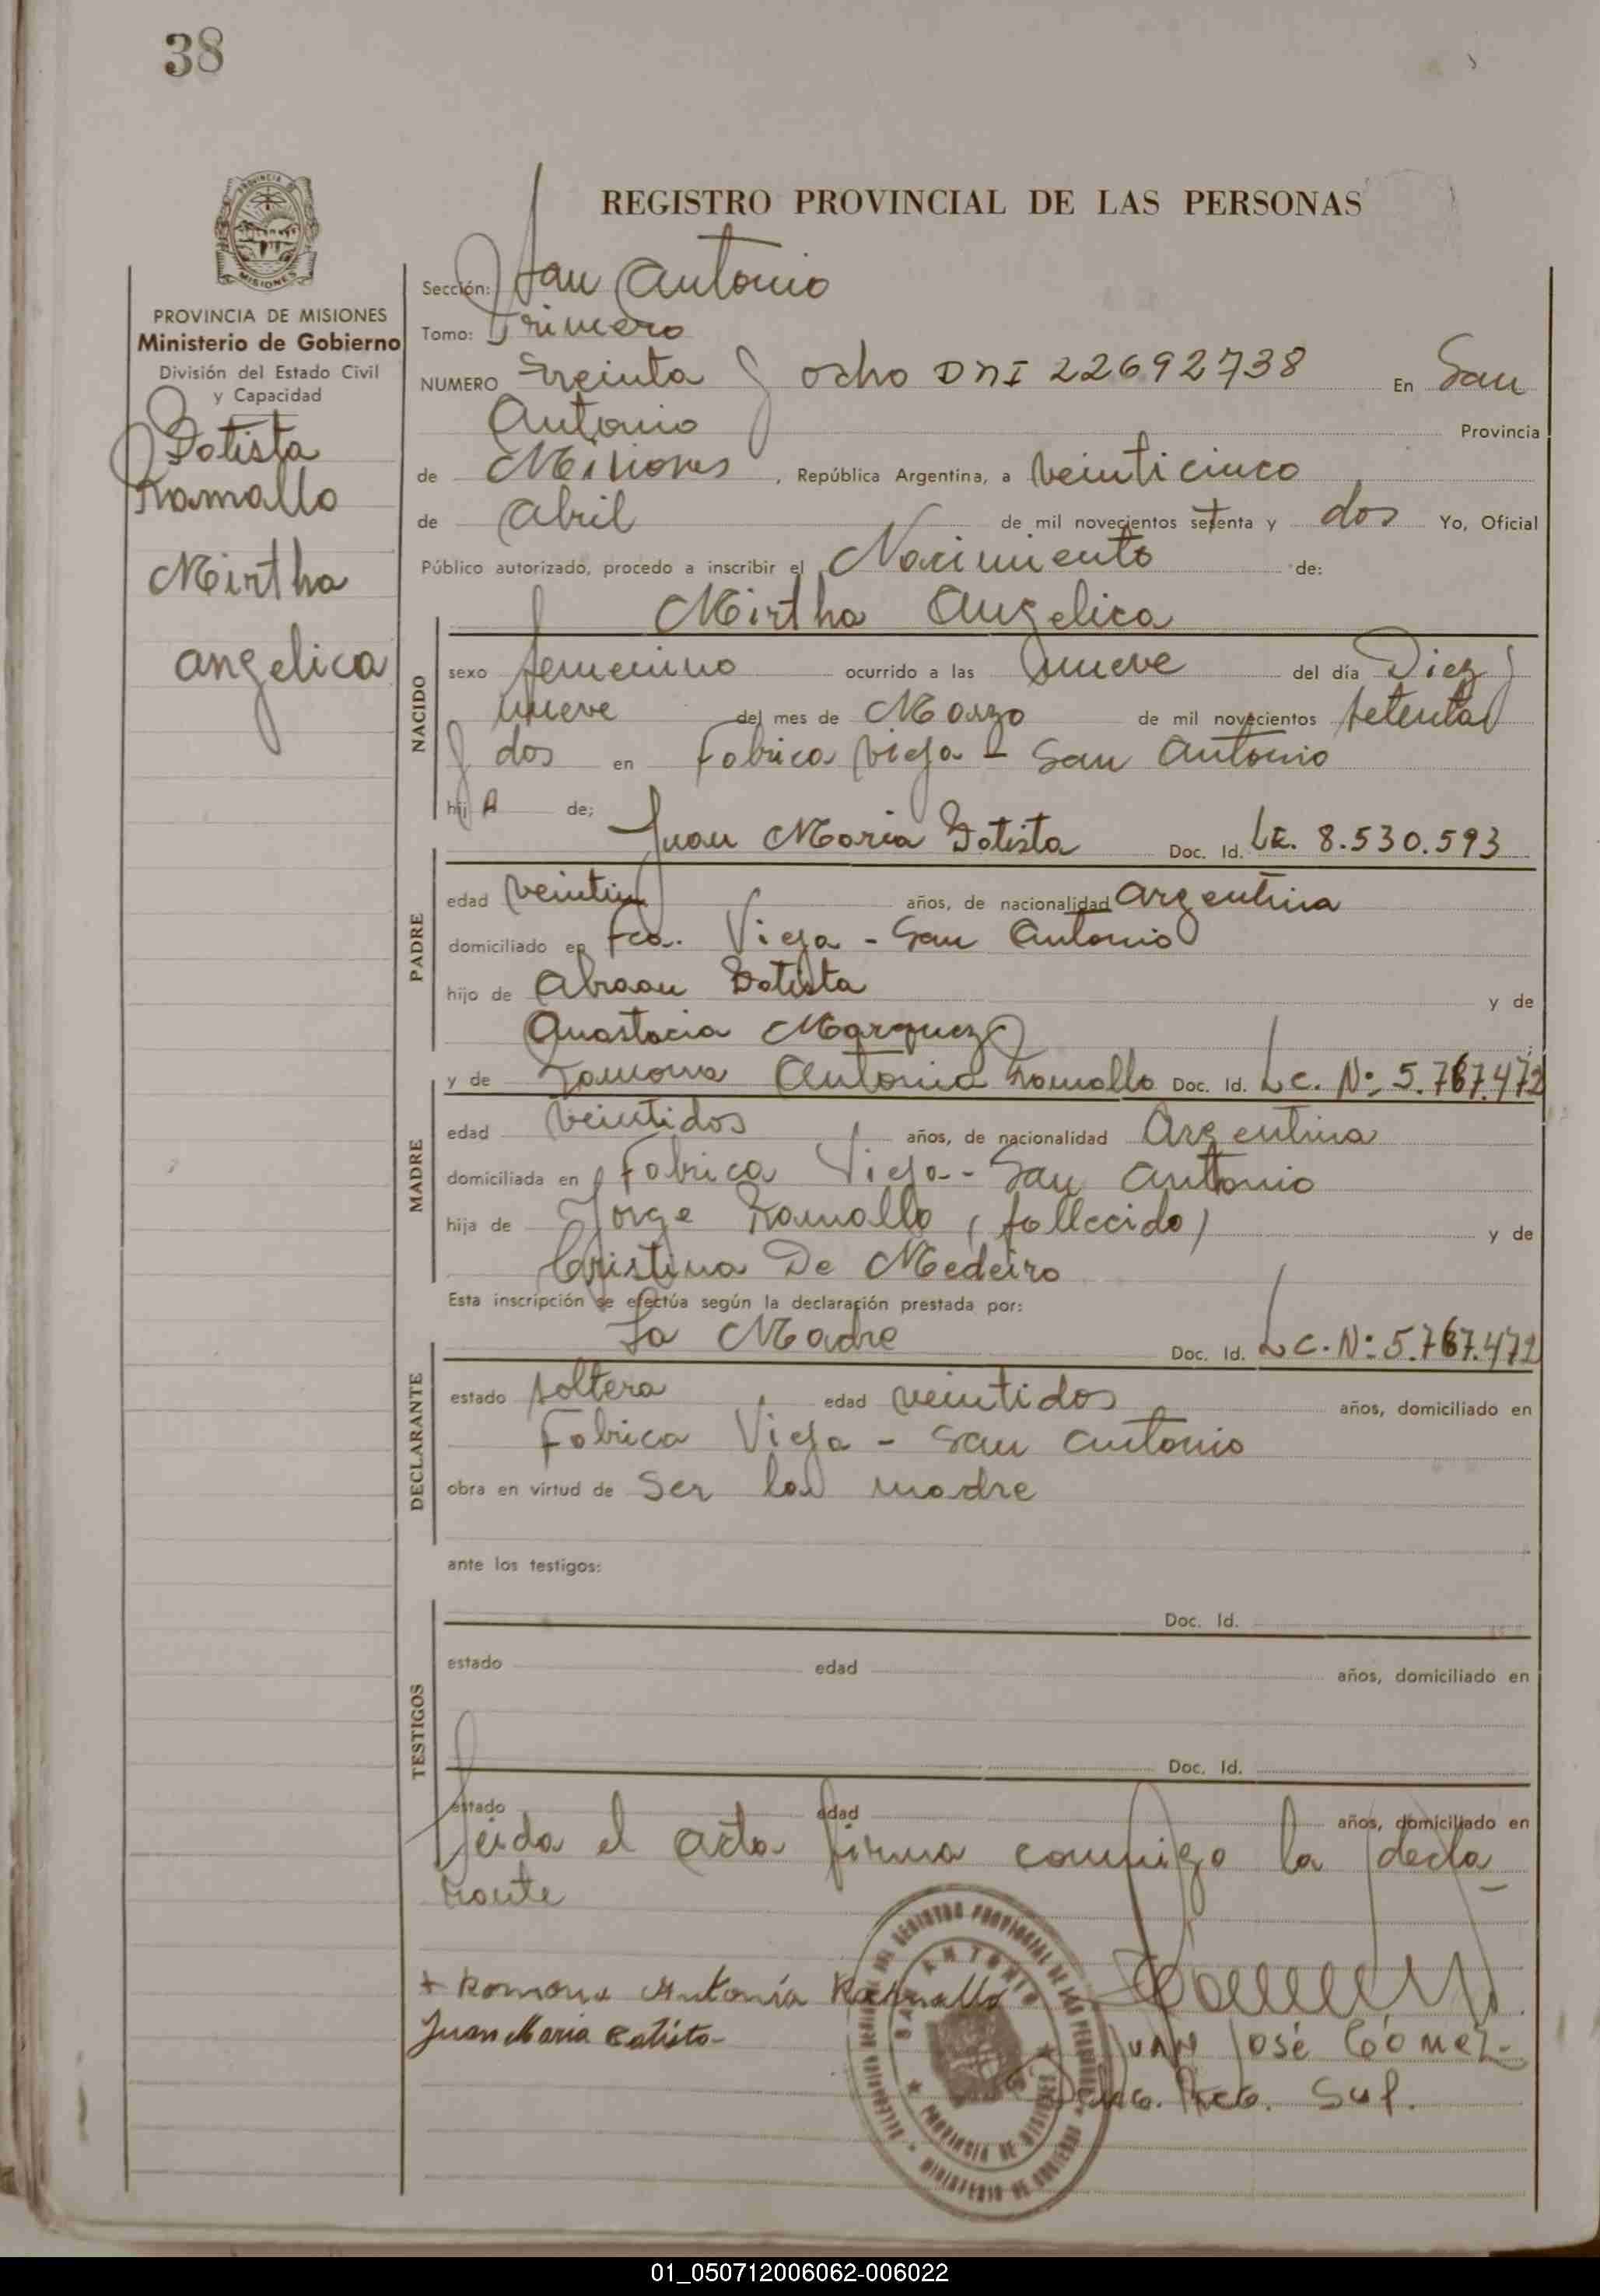 38
REGISTRO PROVINCIAL DE LAS PERSONAS
PROVINCIA DE
MISIONES
PROVINCIA DE MISIONES
Ministerio de Gobierno
División del Estado Civil
y Capacidad
Batista
Ramallo
Mirtha
angelica
Sección: San Antonio
Tomo: Primero
NUMERO Treinta y ocho DNI 22692738 En San
Antonio Provincia
de Misiones, República Argentina, a veinticinco
de Abril de mil novecientos setenta y dos Yo, Oficial
Público autorizado, procedo a inscribir el Nacimiento de:
Mirtha Angelica
NACIDO
sexo femenino ocurrido a las nueve del día Diez y
nueve del mes de Marzo de mil novecientos setenta
y dos en Fabrica Vieja - San Antonio
hij A de;
Juan Maria Batista Doc. Id. LE. 8.530.593
PADRE
edad veintiun años, de nacionalidad Argentina
domiciliado en Fca. Vieja - San Antonio
hijo de Abraan Batista y de
Anastacia Marquez
y de Ramona Antonia Ramallo Doc. Id. L.C. Nº 5.767.472
MADRE
edad veintidos años, de nacionalidad Argentina
domiciliada en Fabrica Vieja - San Antonio
hija de Jorge Ramallo (fallecido) y de
Cristina De Medeiro
Esta inscripción se efectúa según la declaración prestada por:
La Madre Doc. Id. L.C. Nº 5.767.472
DECLARANTE
estado soltera edad veintidos años, domiciliado en
Fabrica Vieja - San Antonio
obra en virtud de Ser la madre
ante los testigos:
Doc. Id.
TESTIGOS
estado edad años, domiciliado en
Doc. Id.
estado edad años, domiciliado en
Leida el acta firma conmigo la decla
rante
+ Ramona Antonia Ramallo
Juan Maria Batista
JUAN JOSÉ GÓMEZ
Enc. Reg. Sup.
SAN ANTONIO
PROVINCIA DE MISIONES
01_050712006062-006022